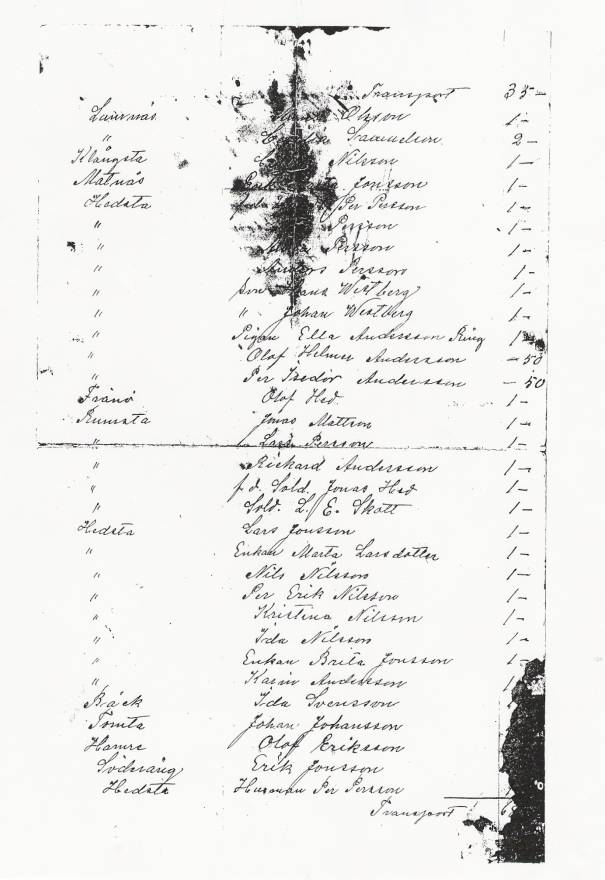 Transport 35 -
Olsson 1 -
" Samuelson 2 -
Klångsta Nilsson 1 -
Mälnäs Jonsson 1 -
Hedsta Per Persson 1 -
" Persson 1 -
" Persson 1 -
" Anders Persson 1 -
" Son Hans Wistberg 1 -
" " Johan Wistberg 1 -
" Pigan Ella Andersson Ring 1 -
" Olof Helmer Andersson - 50
" Per Isedor Andersson - 50
Frånö Olof Hed. 1 -
Rumsta Jonas Mattson 1 -
" Lars Persson 1 -
" Rickard Andersson 1 -
" f.d. Sold. Jonas Hed 1 -
" Sold. L. E. Skott 1 -
Hedsta Lars Jonsson 1 -
" Enkan Marta Larsdotter 1 -
" Nils Nilsson 1 -
" Per Erik Nilsson 1 -
" Kristina Nilsson 1 -
" Ida Nilsson 1 -
" Enkan Brita Jonsson 1 -
" Karin Andersson 1
Bäck Ida Svensson
Tomta Johan Johansson
Hamre Olof Eriksson
Söderäng Erik Jonsson
Hedsta Husman Per Persson
Transport